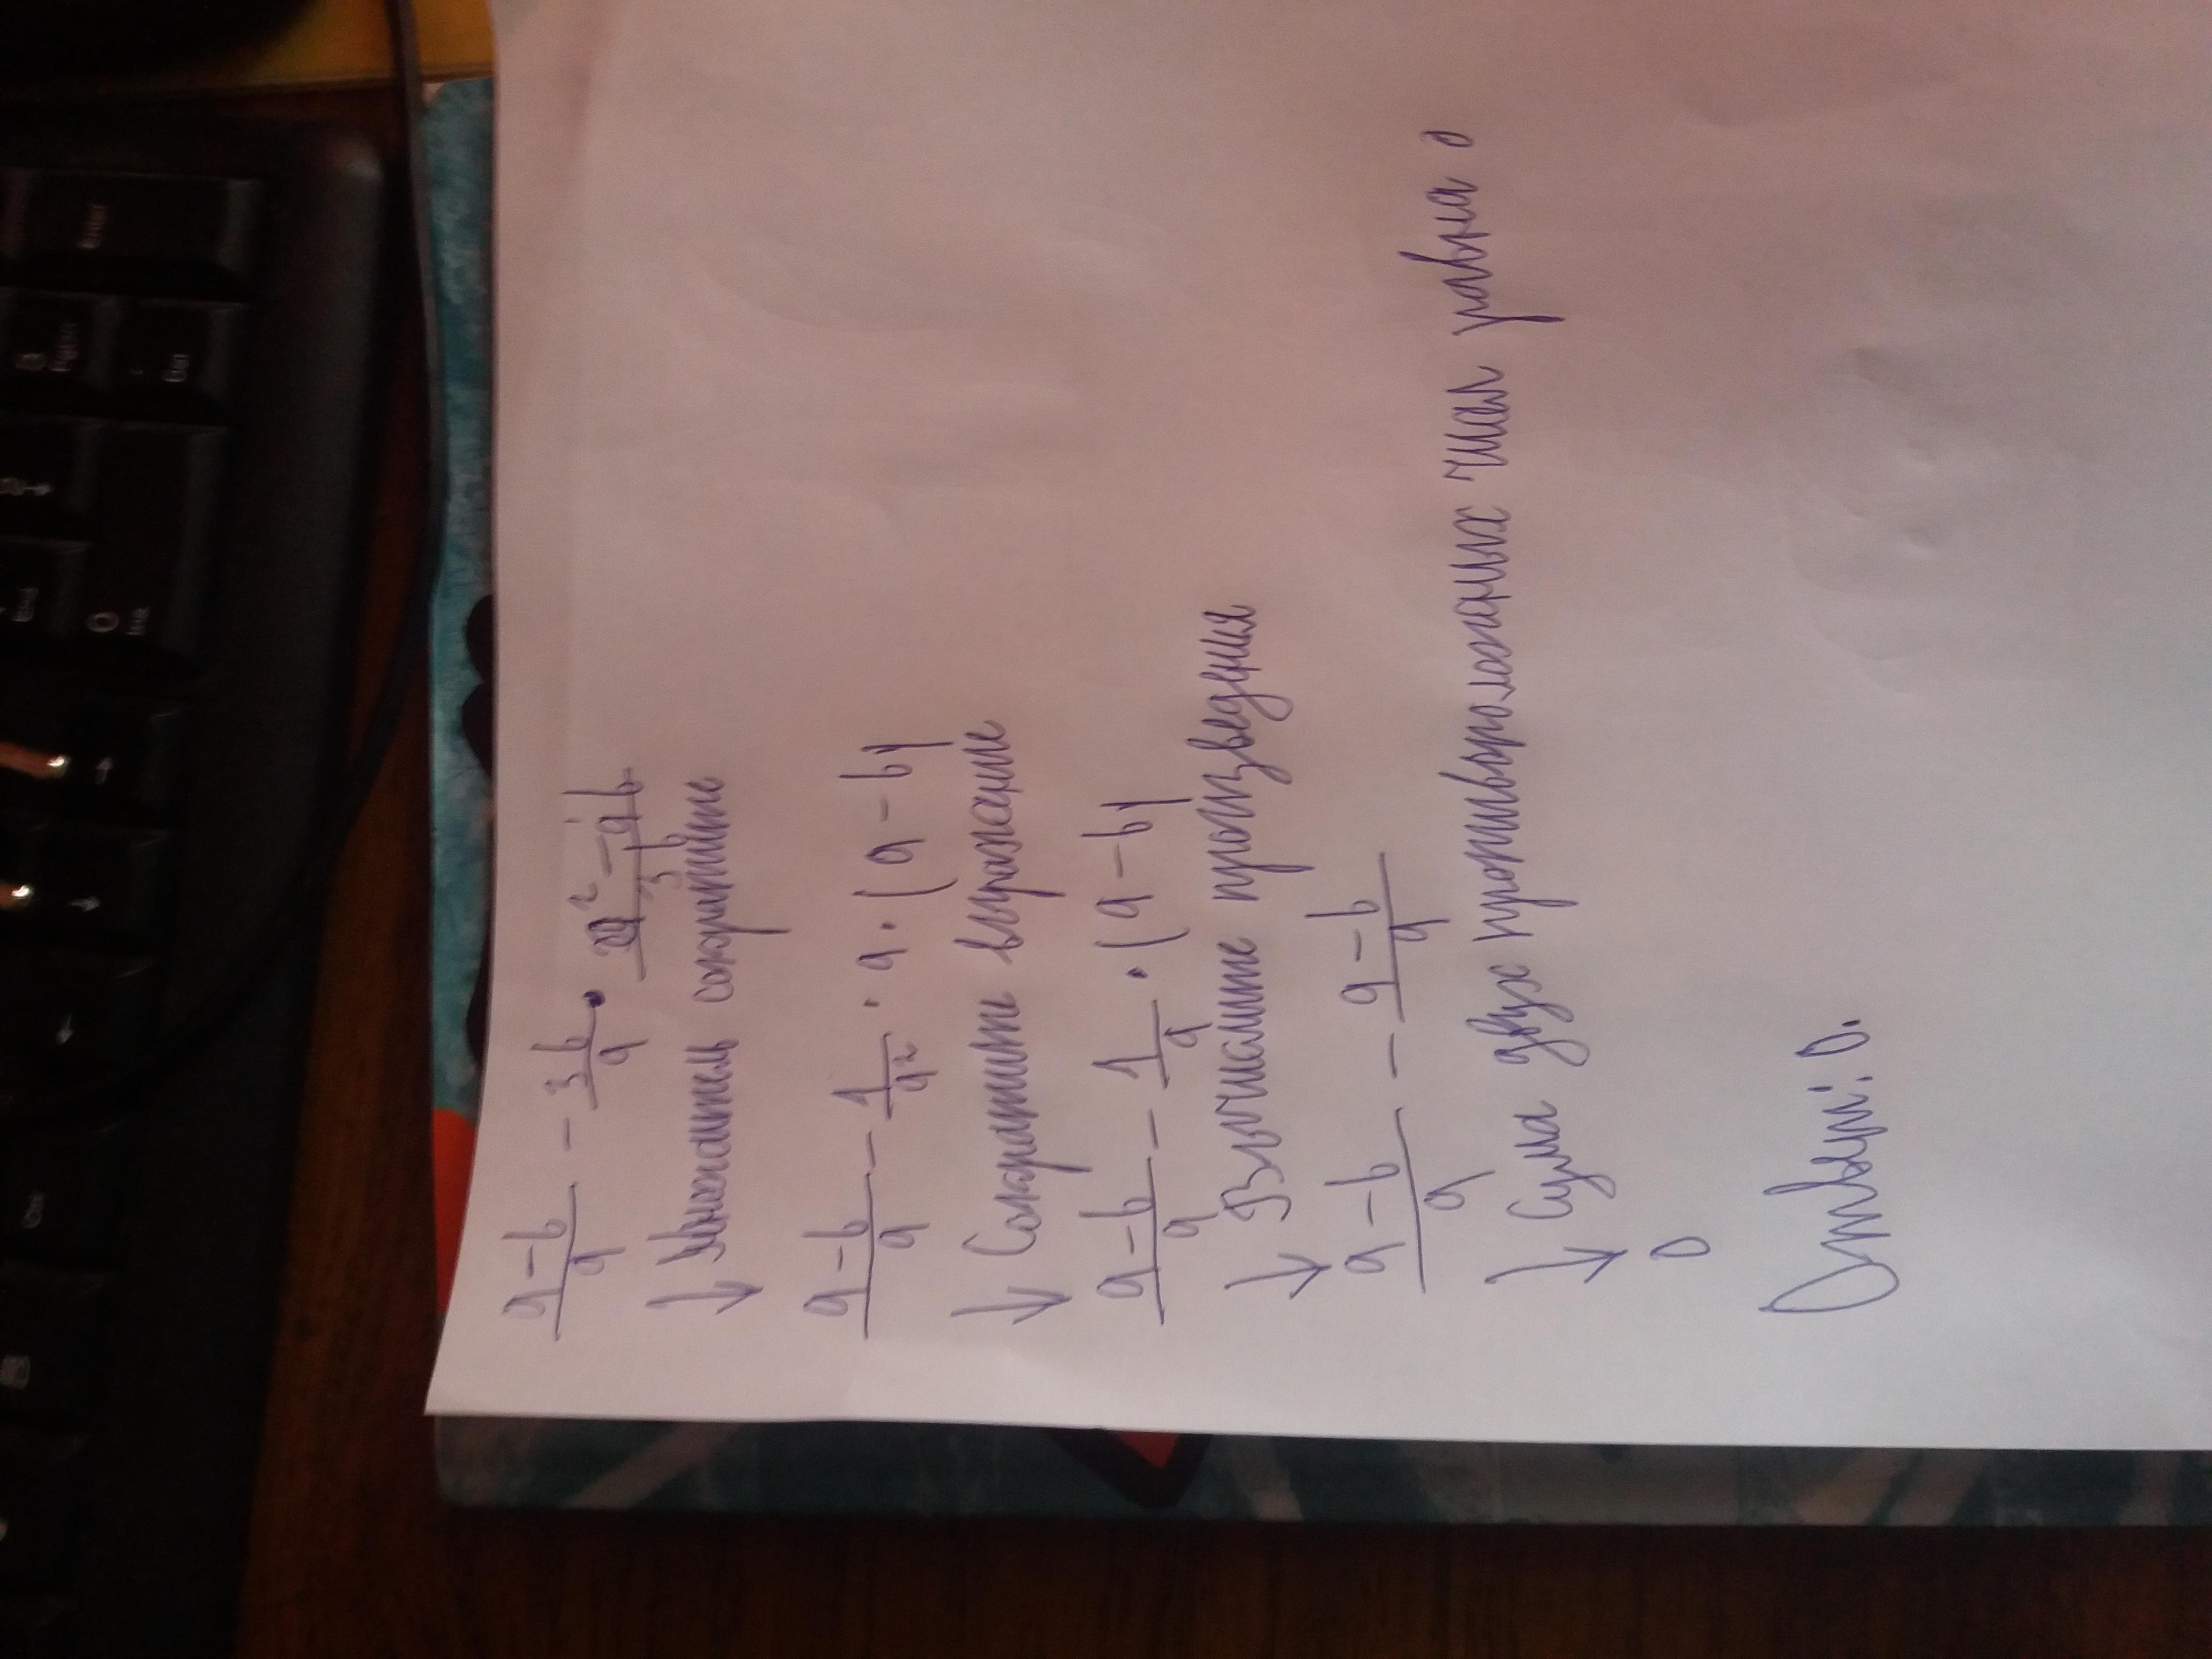 (a-b)/a - 3b/a • (a² - ab)/3b
↓ Множитель сократите
(a-b)/a - 1/a² · a · (a-b)
↓ Сократите выражение
(a-b)/a - 1/a · (a-b)
↓ Вычислите произведения
(a-b)/a - (a-b)/a
↓ Сума двух противоположеных чисел равна 0
0
Ответ: 0.
Enter
Del
End
Ins
Ctrl